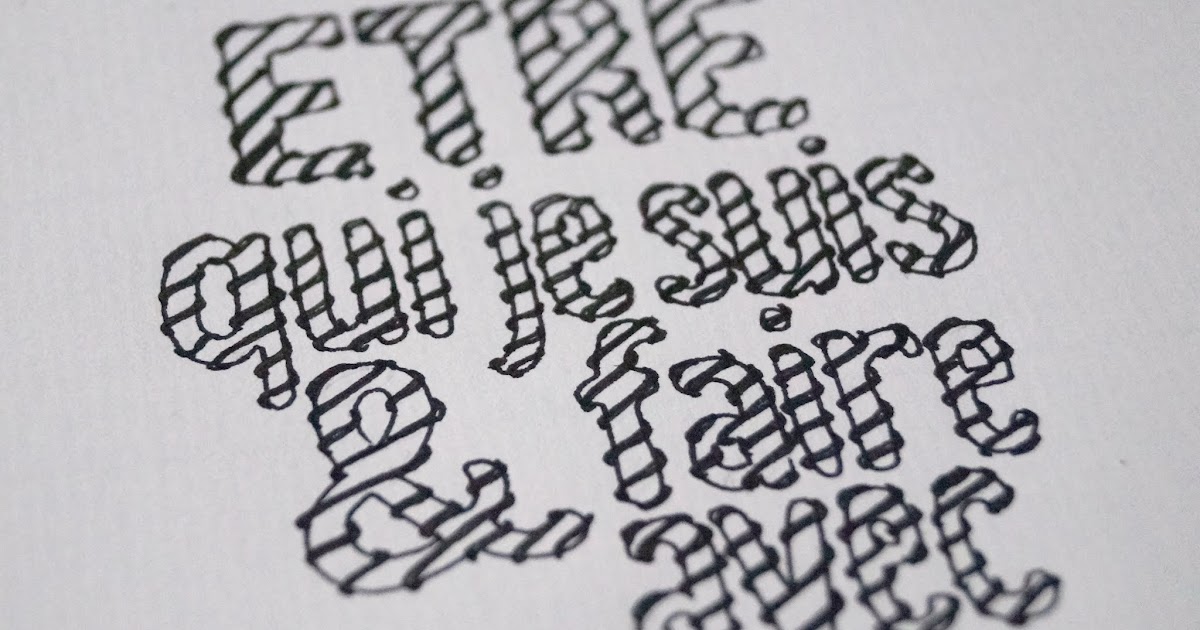 ETRE
qui je suis
& faire
avec